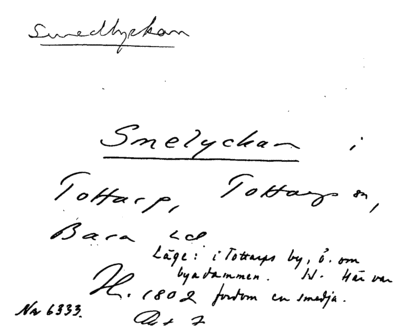 Smedlyckan
Smelyckan i
Tottarp, Tottarps sn,
Bara hd
Läge: i Tottarps by, ö. om
byadammen. Här var
H. 1802 fordom en smedja.
Nr 6333.